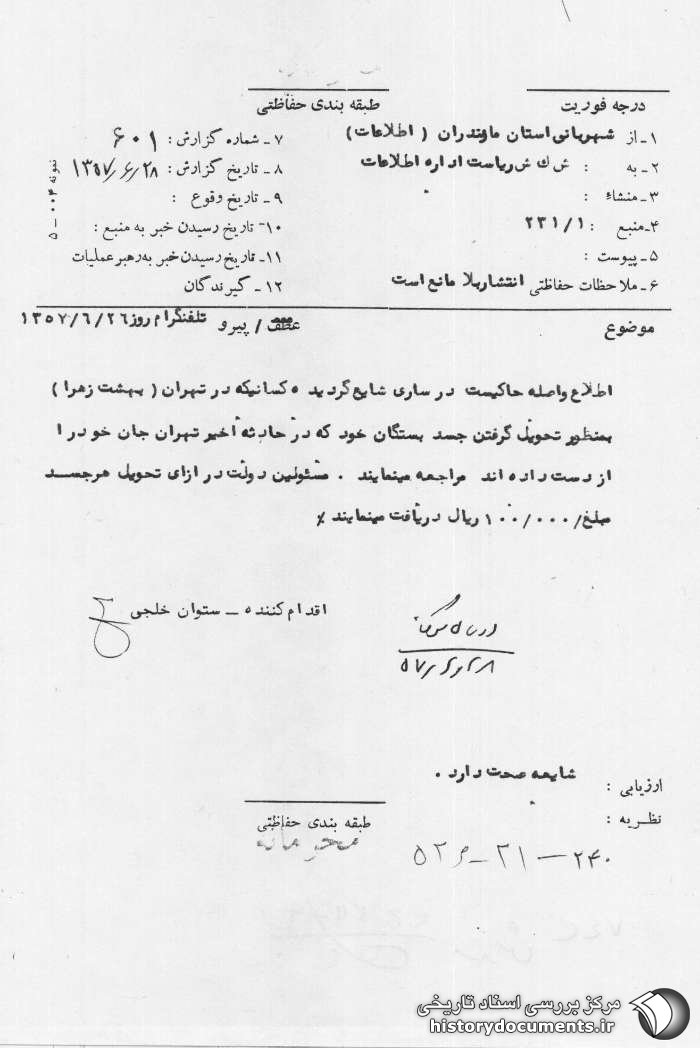 درجه فوریت
طبقه بندی حفاظتی
۱ـ از شهربانی استان مازندران ( اطلاعات )
۷ ـ شماره گزارش : ۶۰۱
۲ ـ به : ش ك ش ریاست اداره اطلاعات
۸ ـ تاریخ گزارش : ۱۳۵۷٫۶٫۲۸
۳ ـ منشاء :
۹ ـ تاریخ وقوع :
۴ـ منبع : ۲۳۱/۱
۱۰ ـ تاریخ رسیدن خبر به منبع :
۵ ـ پیوست :
۱۱ ـ تاریخ رسیدن خبر به رهبر عملیات
۶ ـ ملاحظات حفاظتی انتشار بلا مانع است
۱۲ ـ گیرندگان
نمونه ۰۰۴ ـ ۵
موضوع
عطف / پیرو تلفنگرام روز ۱۳۵۷/۶/۲۶
اطلاع واصله حاکیست در ساری شایع گردیده کسانیکه در تهران ( بهشت زهرا )
بمنظور تحویل گرفتن جسد بستگان خود که در حادثه اخیر تهران جان خود را
از دست داده اند مراجعه مینمایند . مسئولین دولت در ازای تحویل هر جسد
مبلغ/۱۰۰/۰۰۰ ریال دریافت مینمایند ٪
اقدام کننده ـ ستوان خلجی
۵۷٫۶٫۲۸
ارزیابی : شایعه صحت دارد .
نظریه :
طبقه بندی حفاظتی
محرمانه
۲۴۰ـ۲۱ـ
مرکز بررسی اسناد تاریخی
historydocuments.ir